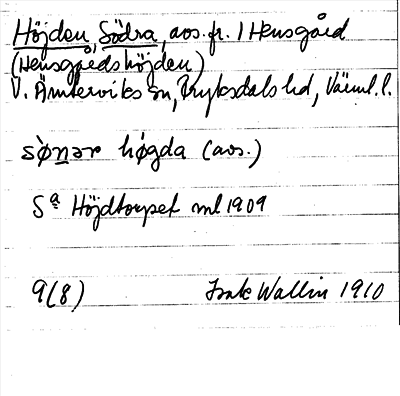 Höjden, Södra, avs. fr. 1 Hensgård
(Hensgårdshöjden)
V. Ämterviks sn, Fryksdals hd, Värml. l.
sø̀nər høgda (avs.)
Sa Höjdtorpet ml 1909
9(8) Isak Wallin 1910